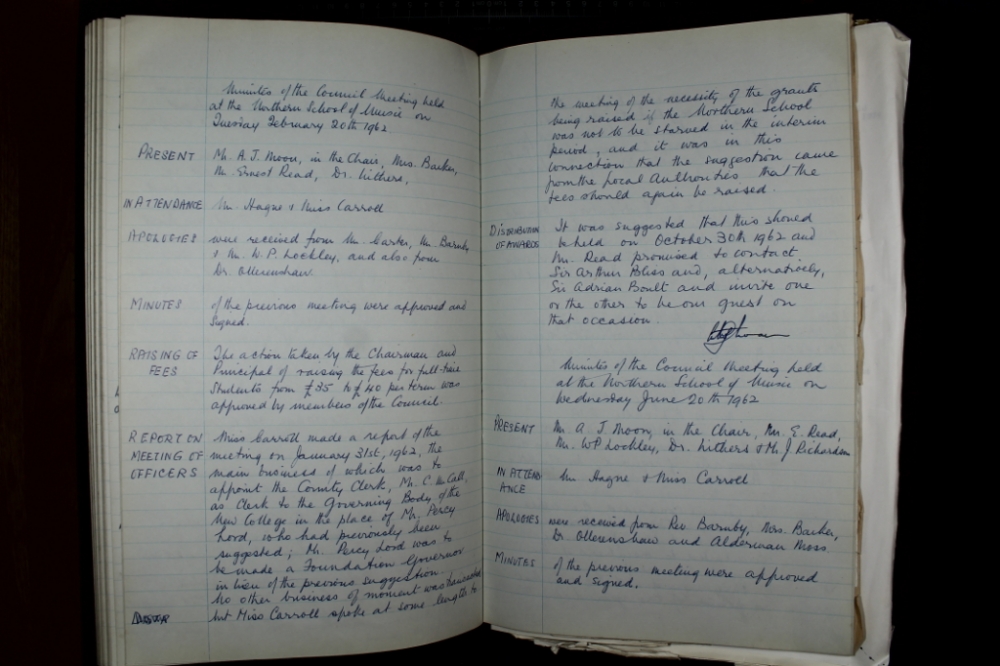 Minutes of the Council Meeting held
at the Northern School of Music on
Tuesday February 20th 1962
PRESENT Mr. A. J. Moon, in the Chair, Mrs. Barker,
Mr. Ernest Read, Dr. Lithers,
IN ATTENDANCE Mr. Hague & Miss Carroll
APOLOGIES were received from Mr. Carter, Mr. Barnby
& Mr. W. P. Lockley, and also from
Dr. Ollerenshaw.
MINUTES of the previous meeting were approved and
signed.
RAISING OF The action taken by the Chairman and
FEES Principal of raising the fees for full-time
students from £35 to £40 per term was
approved by members of the Council.
REPORT ON Miss Carroll made a report of the
MEETING OF meeting on January 31st, 1962, the
OFFICERS main business of which was to
appoint the County Clerk, Mr. C. McCall,
as Clerk to the Governing Body of the
New College in the place of Mr. Percy
Lord, who had previously been
suggested; Mr. Percy Lord was to
be made a Foundation Governor
in lieu of the previous suggestion.
No other business of moment was transacted
but Miss Carroll spoke at some length to
the meeting of the necessity of the grants
being raised if the Northern School
was not to be starved in the interim
period, and it was in this
connection that the suggestion came
from the Local Authorities that the
fees should again be raised.
DISTRIBUTION It was suggested that this should
OF AWARDS be held on October 30th 1962 and
Mr. Read promised to contact
Sir Arthur Bliss and, alternatively,
Sir Adrian Boult and invite one
or the other to be our guest on
that occasion.
Minutes of the Council Meeting held
at the Northern School of Music on
Wednesday June 20th 1962
PRESENT Mr. A. J. Moon, in the Chair, Mr. E. Read,
Mr. W P Lockley, Dr. Lithers & Mr. J Richardson
IN ATTEND Mr Hague & Miss Carroll
ANCE
APOLOGIES were received from Rev Barnby, Mrs. Barker,
Dr Ollerenshaw and Alderman Moss
MINUTES of the previous meeting were approved
and signed.